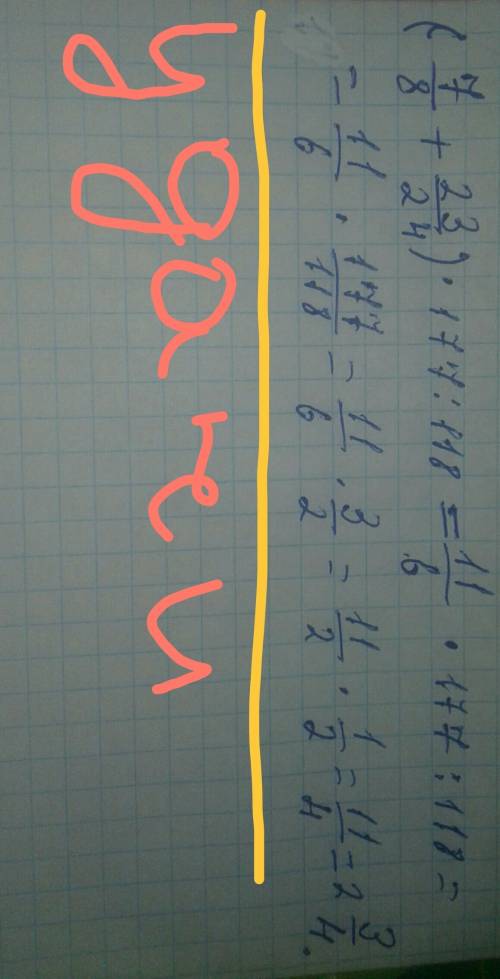 (7/8 + 23/24) · 177 : 118 = 11/6 · 177 : 118 =
= 11/6 · 177/118 = 11/6 · 3/2 = 11/2 · 1/2 = 11/4 = 2 3/4.
удачи